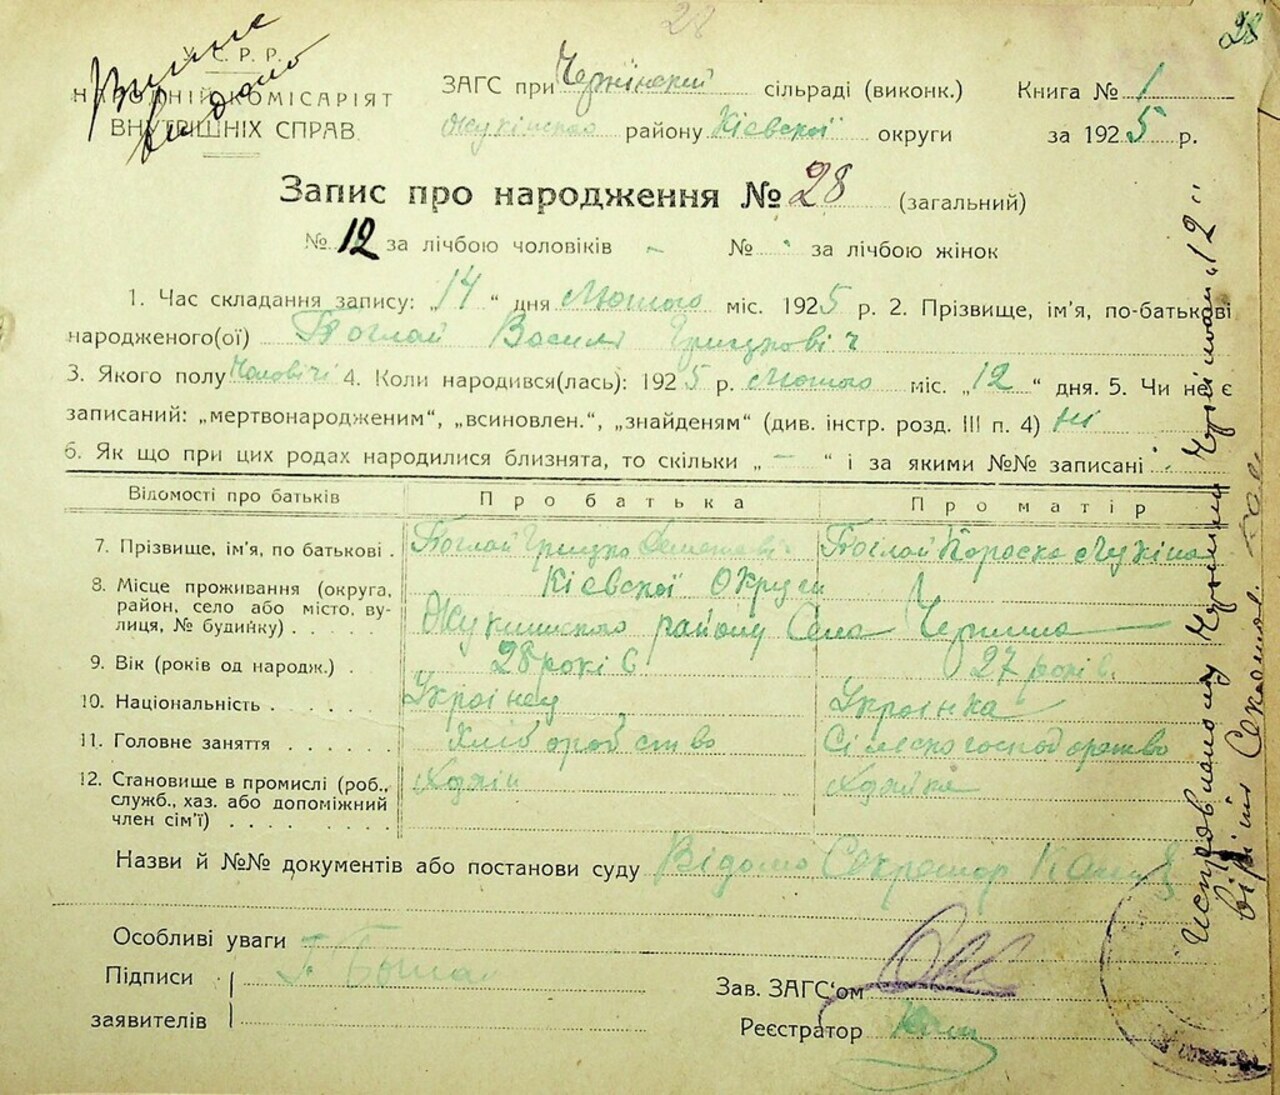 28
28
Виписъ
видано
У. С. Р. Р.
НАРОДНІЙ КОМІСАРІЯТ
ВНУТРІШНІХ СПРАВ.
ЗАГС при Чернінский сільраді (виконк.) Книга № 1
району Кієвскої округи за 1925 р.
Запис про народження № 28 (загальний)
№ 12 за лічбою чоловіків - № за лічбою жінок
1. Час складання запису: „14“ дня Лютого міс. 1925 р. 2. Прізвище, ім'я, по-батькові
народженого(ої) Василь Грицкович
3. Якого полу Чоловічі 4. Коли народився(лась): 1925 р. Лютого міс. „12“ дня. 5. Чи не є
записаний: „мертвонародженим“, „всиновлен.“, „знайденям“ (див. інстр. розд. III п. 4) Ні
6. Як що при цих родах народилися близнята, то скільки „-“ і за якими №№ записані
Відомості про батьків Про батька Про матір
7. Прізвище, ім'я, по батькові . Грицко
8. Місце проживання (округа, район, село або місто, вулиця, № будинку) . . . . . Кієвскої Округи
району Села Чернина
9. Вік (років од народж.) . 28 років 27 років.
10. Національність . . . . . . Українец Українка
11. Головне заняття . . . . . . Хліборобство
12. Становище в промислі (роб., служб., хаз. або допоміжний член сім'ї) . . . . . . Хозяін Хозяйка
Назви й №№ документів або постанови суду Відомо Секретар
Особливі уваги
Підписи
заявителів
Зав. ЗАГС'ом
Реєстратор
Исправленому „12“
вірить Секретар.